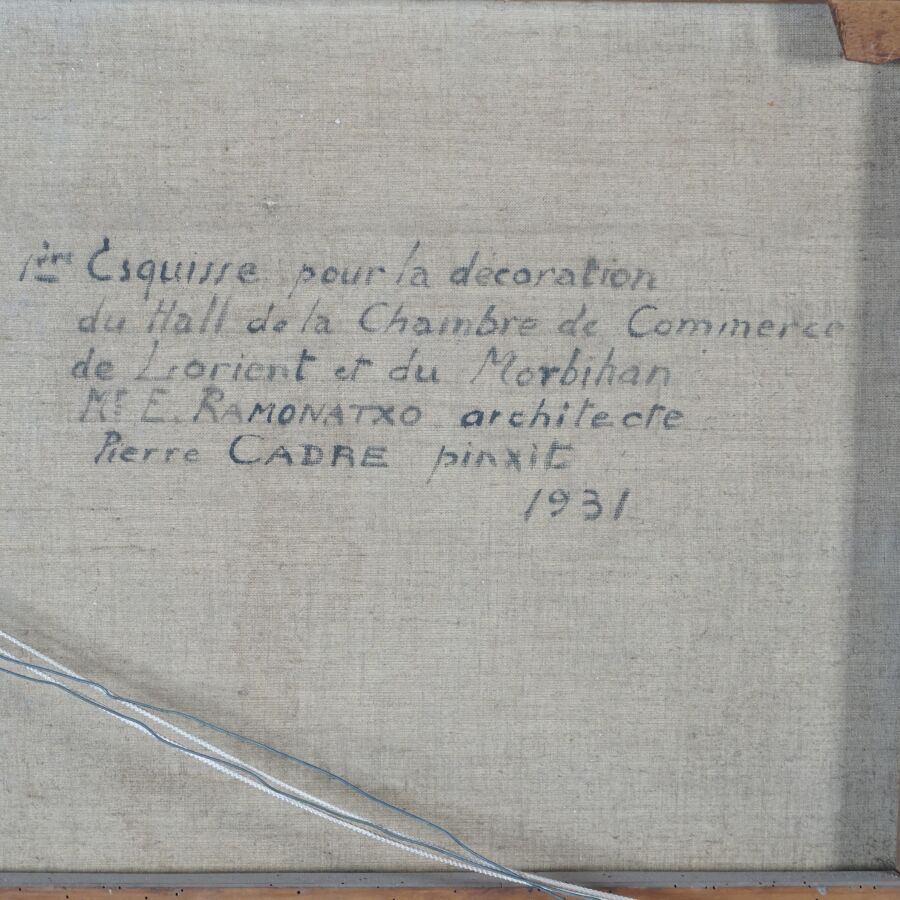 1ère Esquisse pour la décoration
du Hall de la Chambre de Commerce
de Lorient et du Morbihan
Mr E. RAMONATXO architecte
Pierre CADRE pinxit
1931